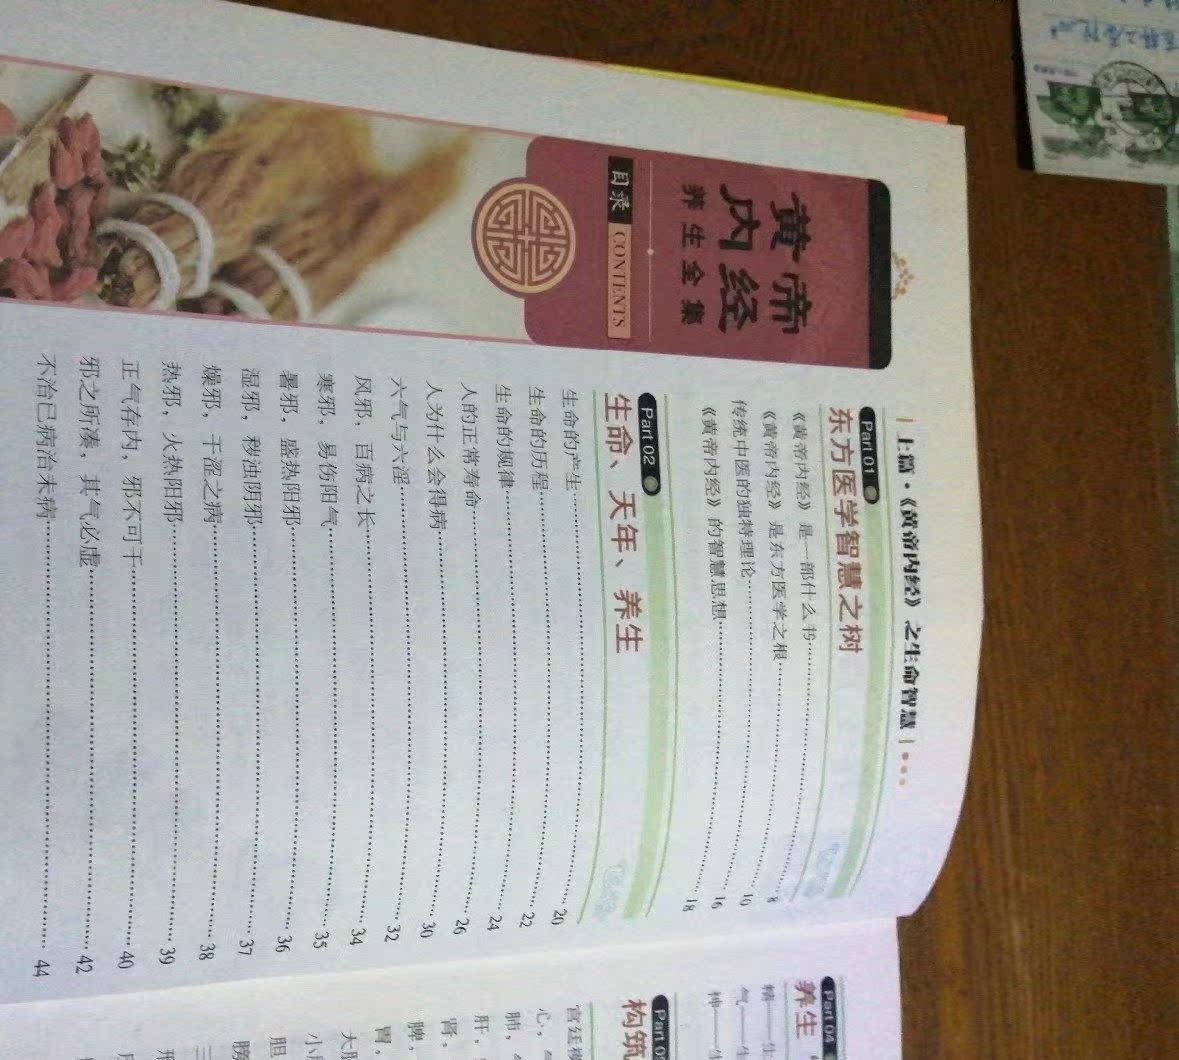 黄帝
内经
养生全集
目录 CONTENTS
上篇·《黄帝内经》之生命智慧
Part 01
东方医学智慧之树
《黄帝内经》是一部什么书 8
《黄帝内经》是东方医学之根 10
传统中医的独特理论 16
《黄帝内经》的智慧思想 18
Part 02
生命、天年、养生
生命的产生 20
生命的历程 22
生命的规律 24
人的正常寿命 26
人为什么会得病 30
六气与六淫 32
风邪，百病之长 34
寒邪，易伤阳气 35
暑邪，盛热阳邪 36
湿邪，秽浊阴邪 37
燥邪，干涩之病 38
热邪，火热阳邪 39
正气存内，邪不可干 40
邪之所凑，其气必虚 42
不治已病治未病 44
Part 04
养生
精——生
气——生
神——生
Part 0
构筑
宫廷
心，
肺，
肝，
肾，
脾，
胃，
大肠
小肠
胆
膀
三